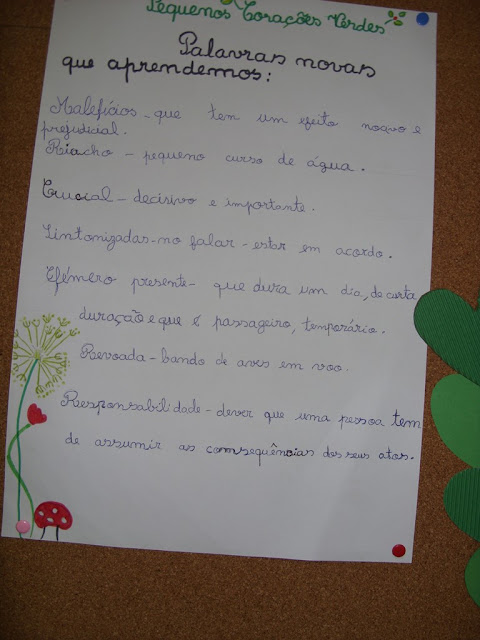 Pequenos Corações Verdes
Palavras novas
que aprendemos:
Malefícios - que tem um efeito nocivo e
prejudicial.
Riacho - pequeno curso de água.
Crucial - decisivo e importante.
Sintonizadas - no falar - estar em acordo.
Efémero presente - que dura um dia, de curta
duração e que é passageiro, temporário.
Revoada - bando de aves em voo.
Responsabilidade - dever que uma pessoa tem
de assumir as consequências dos seus atos.